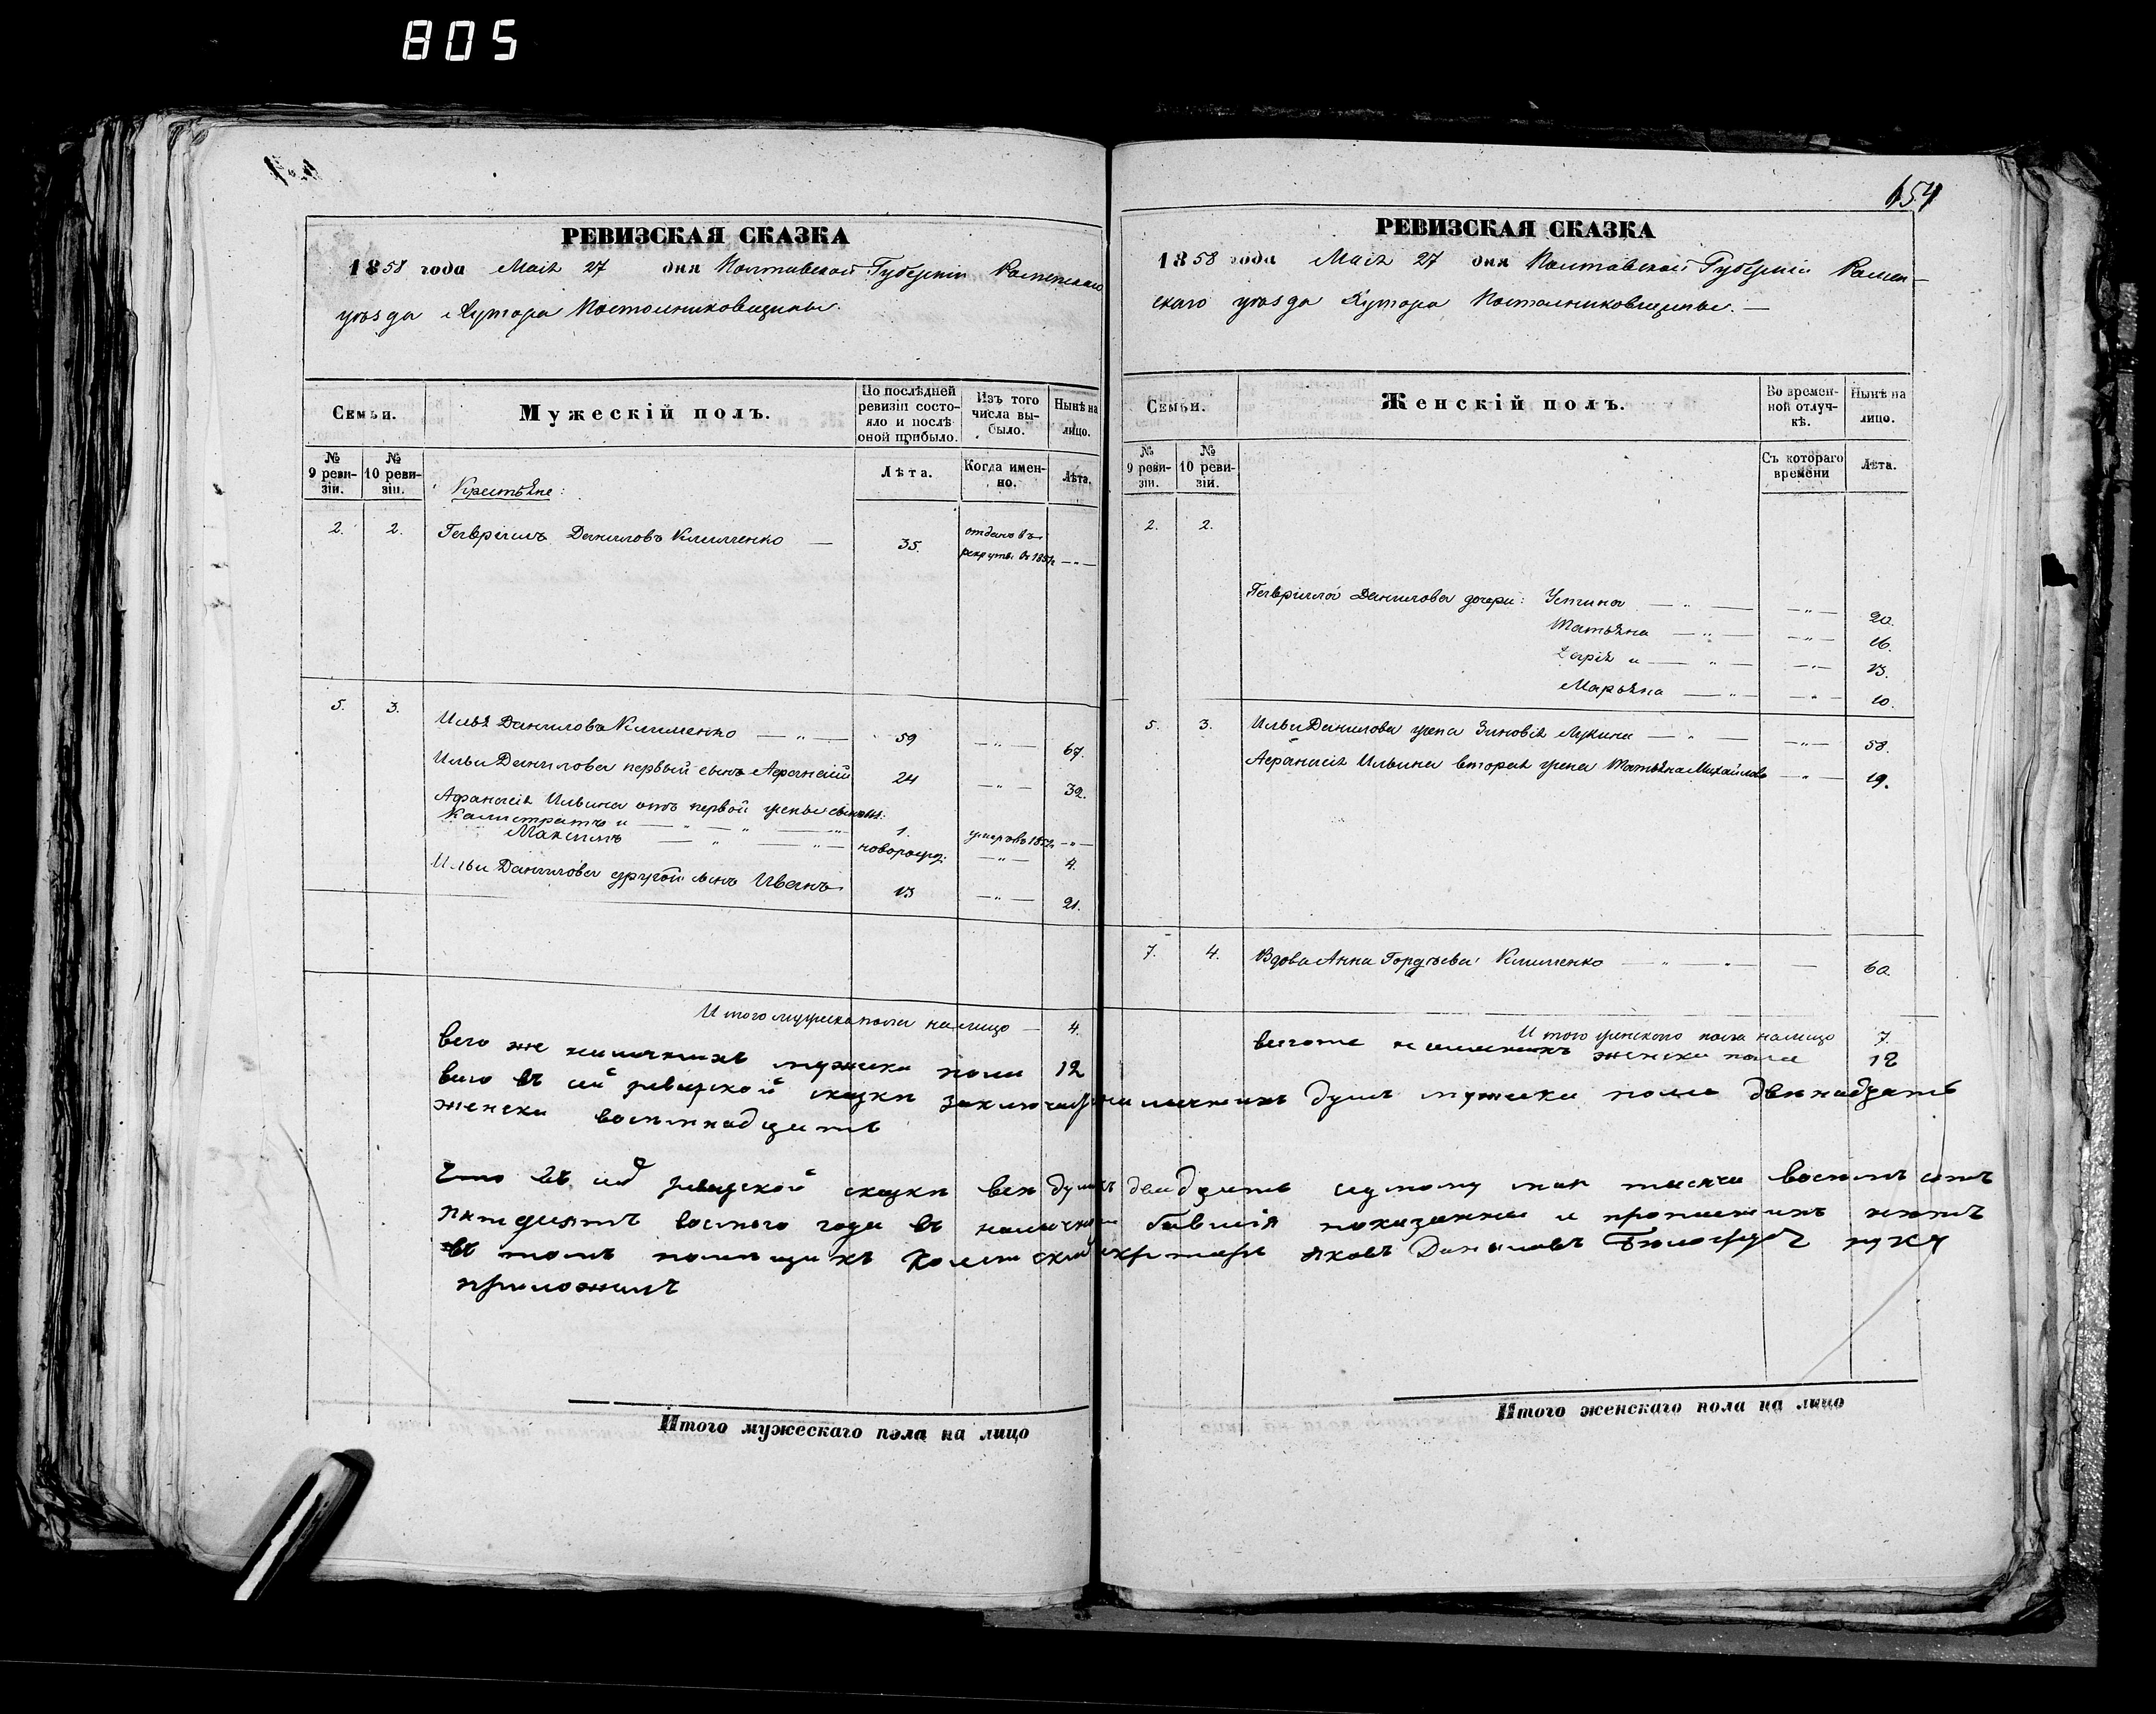 805
654
РЕВИЗСКАЯ СКАЗКА
1858 года Маія 27 дня Полтавской Губерніи Роменскаго
уѣзда Хутора Постольниковщины.
Семьи.
Мужескій полъ.
По послѣдней ревизіи состояло и послѣ оной прибыло.
Изъ того числа выбыло.
Нынѣ на лицо.
№ 9 ревизіи.
№ 10 ревизіи.
Крестьяне:
Лѣта.
Когда именно.
Лѣта.
2. 2. Гавріилъ Даниловъ Клименко — 35. отданъ въ
рекруты въ 185 — „ —
5. 3. Илья Даниловъ Клименко — „ — 59 — „ — 67.
Ильи Данилова первый сынъ Афанасій 24 — „ — 32.
Афанасія Ильина отъ первой жены сыновья:
Калистратъ и — „ — „ — „ — 1. умеръ въ 1852 — „ —
Максимъ — „ — „ — новорожд. — „ — 4.
Ильи Данилова другой сынъ Иванъ 13 — „ — 21.
Итого мужеска пола на лицо — 4.
всего же наличныхъ мужеска пола 12
РЕВИЗСКАЯ СКАЗКА
1858 года Маія 27 дня Полтавской Губерніи Ромен-
скаго уѣзда Хутора Постольниковщины. —
Семьи.
Женскій полъ.
Во временной отлучкѣ.
Нынѣ на лицо.
№ 9 ревизіи.
№ 10 ревизіи.
Съ котораго времени
Лѣта.
2. 2.
Гавріила Данилова дочери: Устина — „ — — „ — 20.
Татьяна — „ — — „ — 16.
Дарія и — „ — — „ — 13.
Марьяна — „ — — „ — 10.
5. 3. Ильи Данилова жена Зиновія Лукина — „ — — „ — 58.
Афанасія Ильина вторая жена Татьяна Михайлова — „ — 19.
7. 4. Вдова Анна Гордѣева Клименко — „ — „ — — 60.
Итого женского пола на лицо 7.
всего же наличныхъ женска пола 12
всего въ сей ревизской сказки заключается наличныхъ душъ мужеска пола двѣнадцать
женска
Что въ сей ревизской сказки всѣ души двадцать седьмому мая тысяча восемь сотъ
пятдесятъ восмого года въ наличности бывшія показанны и прописныхъ нѣтъ
въ томъ помѣщикъ Колежскій секретарь Яковъ Даниловъ руку
приложилъ
Итого мужескаго пола на лицо
Итого женскаго пола на лицо